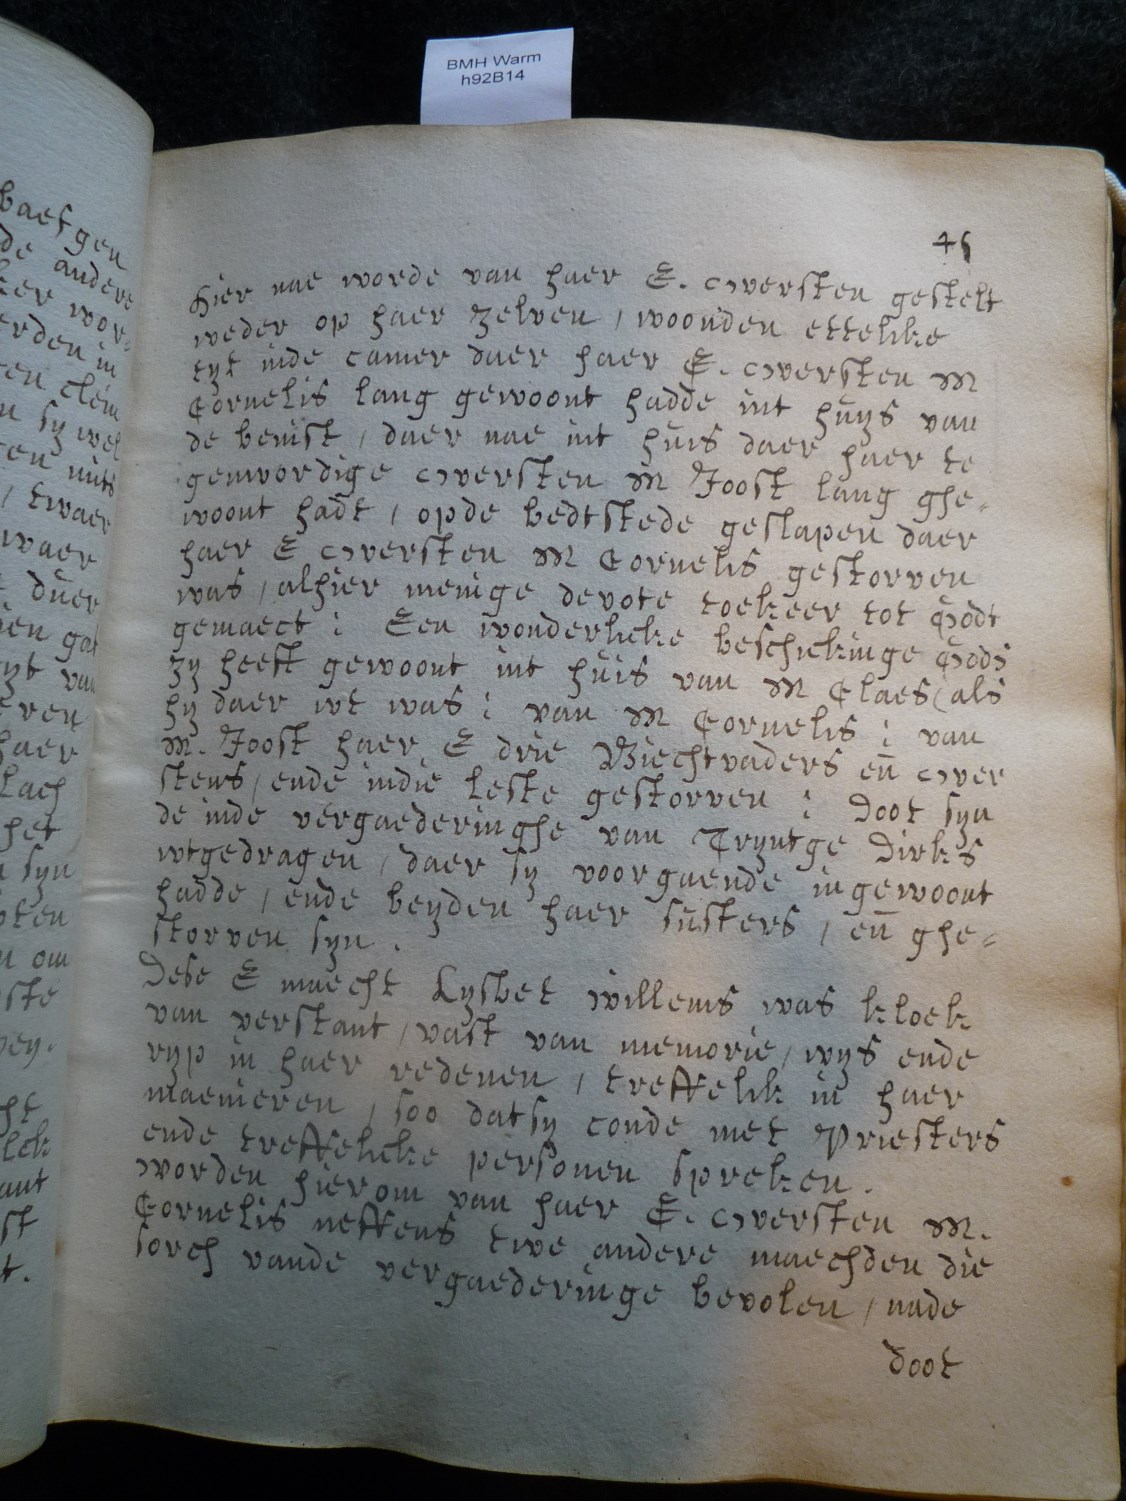 BMH Warm
h92B14
baefgen
de andere
ker wor-
erden in
en clein
n sy wel
ren mits
, twaer
waer
t duer
ien gat
yt van
eren
haer
lach
het
n syn
oten
n om
ste
vey.
cht
lck
ant
st
t.
45
Hier nae worde van haer E. Oversten gestelt
weder op haer zelven, woonden ettelike
tyt inde camer daer haer E. Oversten M
Cornelis lang gewoont hadde int huys van
de benist, daer nae int huis daer haer te
genwordige Oversten M Joost lang ghe-
woont hadt, opde bedtstede geslapen daer
haer E Oversten M Cornelis gestorven
was, alhier menige devote toekeer tot Godt
gemaect: Een wonderlicke beschickinge Gods
zy heeft gewoont int huis van M Claes (als
hy daer wt was: van M Cornelis: van
M. Joost haer E drie Biechtvaders en̄ Over
stens, ende indie leste gestorven: Doot syn
de inde vergaederinghe van Tryntge Dirks
wtgedragen, daer sy voorgaende ingewoont
hadde, ende beyden haer susters, en̄ ghe-
storven syn.
Dese E maecht Lysbet Willems was kloek
van verstant, vast van memorie, wys ende
ryp in haer redenen, treffelik in haer
maenieren, soo datsy conde met Priesters
ende treffelicke personen spreken.
Worden hierom van haer E. Oversten M.
Cornelis neffens twe andere maechden die
sorch vande vergaederinge bevolen, nade
doot